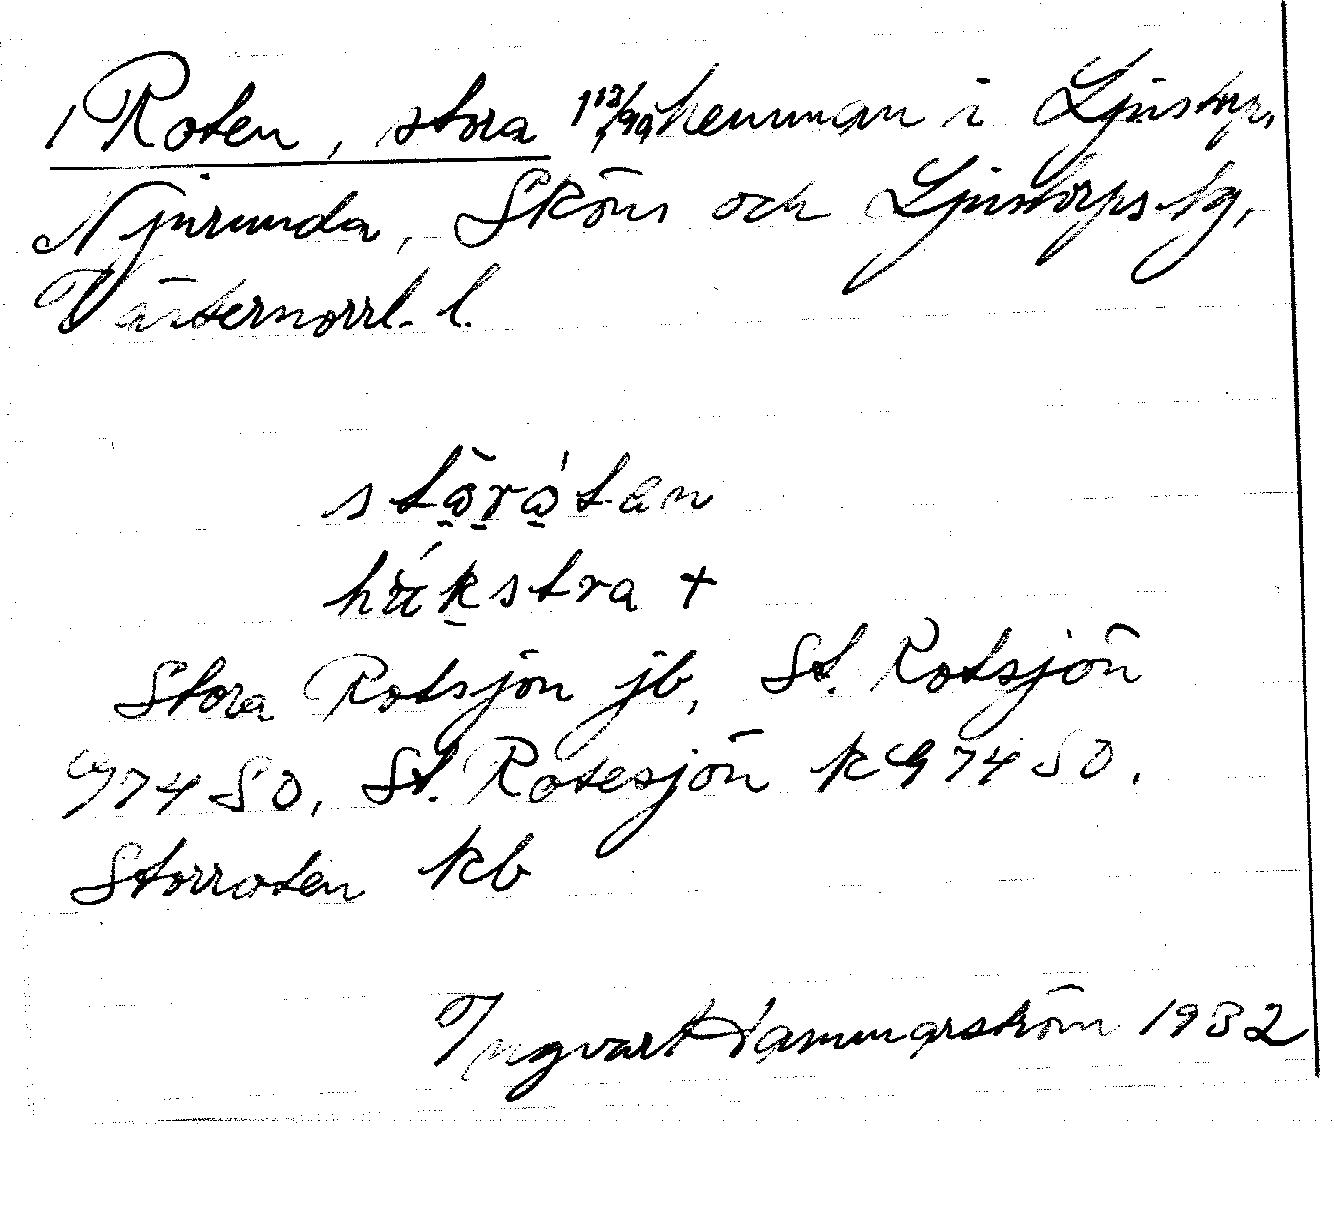 Roten, stora hemman i Ljustorp,
Njurunda, Sköns och Ljustorps tg,
Västernorrl. l.
Stora Rotsjön jb, St. Rotsjön
G74SO, St. Rotesjön kG74SO.
Storroten kb
Ingvar Hammarström 1932